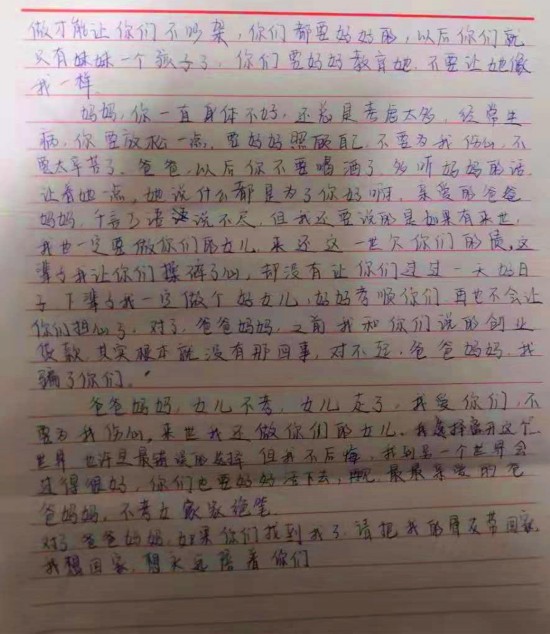 做才能让你们不吵架，你们都要好好的，以后你们就
只有妹妹一个孩子了，你们要好好教育她，不要让她像
我一样。
妈妈，你一直身体不好，还总是考虑太多，经常生
病，你要放松一点，要好好照顾自己，不要为我伤心，不
要太辛苦了。爸爸，以后你不要喝酒了，多听妈妈的话，
让着她一点，她说什么都是为了你好啊，亲爱的爸爸
妈妈，千言万语说不尽，但我还要说的是如果有来世，
我也一定要做你们的女儿，来还这一世欠你们的债，这
辈子我让你们操碎了心，却没有让你们过过一天好日
子，下辈子我一定做个好女儿，好好孝顺你们，再也不会让
你们担心了，对了，爸爸妈妈，之前我和你们说的创业
贷款，其实根本就没有那回事，对不起，爸爸妈妈，我
骗了你们。
爸爸妈妈，女儿不孝，女儿走了，我爱你们，不
要为我伤心，来世我还做你们的女儿，我选择离开这个
世界，也许是最错误的选择，但我不后悔，我到另一个世界会
过得很好，你们也要好好活下去，最最亲爱的爸
爸妈妈，不孝女 家家绝笔
对了，爸爸妈妈，如果你们找到我了，请把我的骨灰带回家，
我想回家，想永远陪着你们